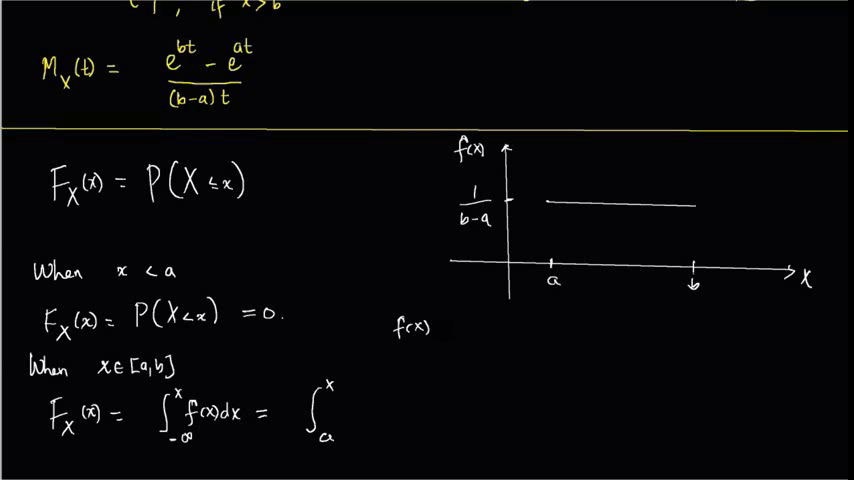 , if x > b
M_X(t) = (e^{bt} - e^{at}) / ((b-a)t)
F_X(x) = P(X ≤ x)
When x < a
F_X(x) = P(X < x) = 0.
When x ∈ [a,b]
F_X(x) = ∫_{-∞}^{x} f(x)dx = ∫_{a}^{x}
f(x)
1/(b-a)
a
b
X
f(x)